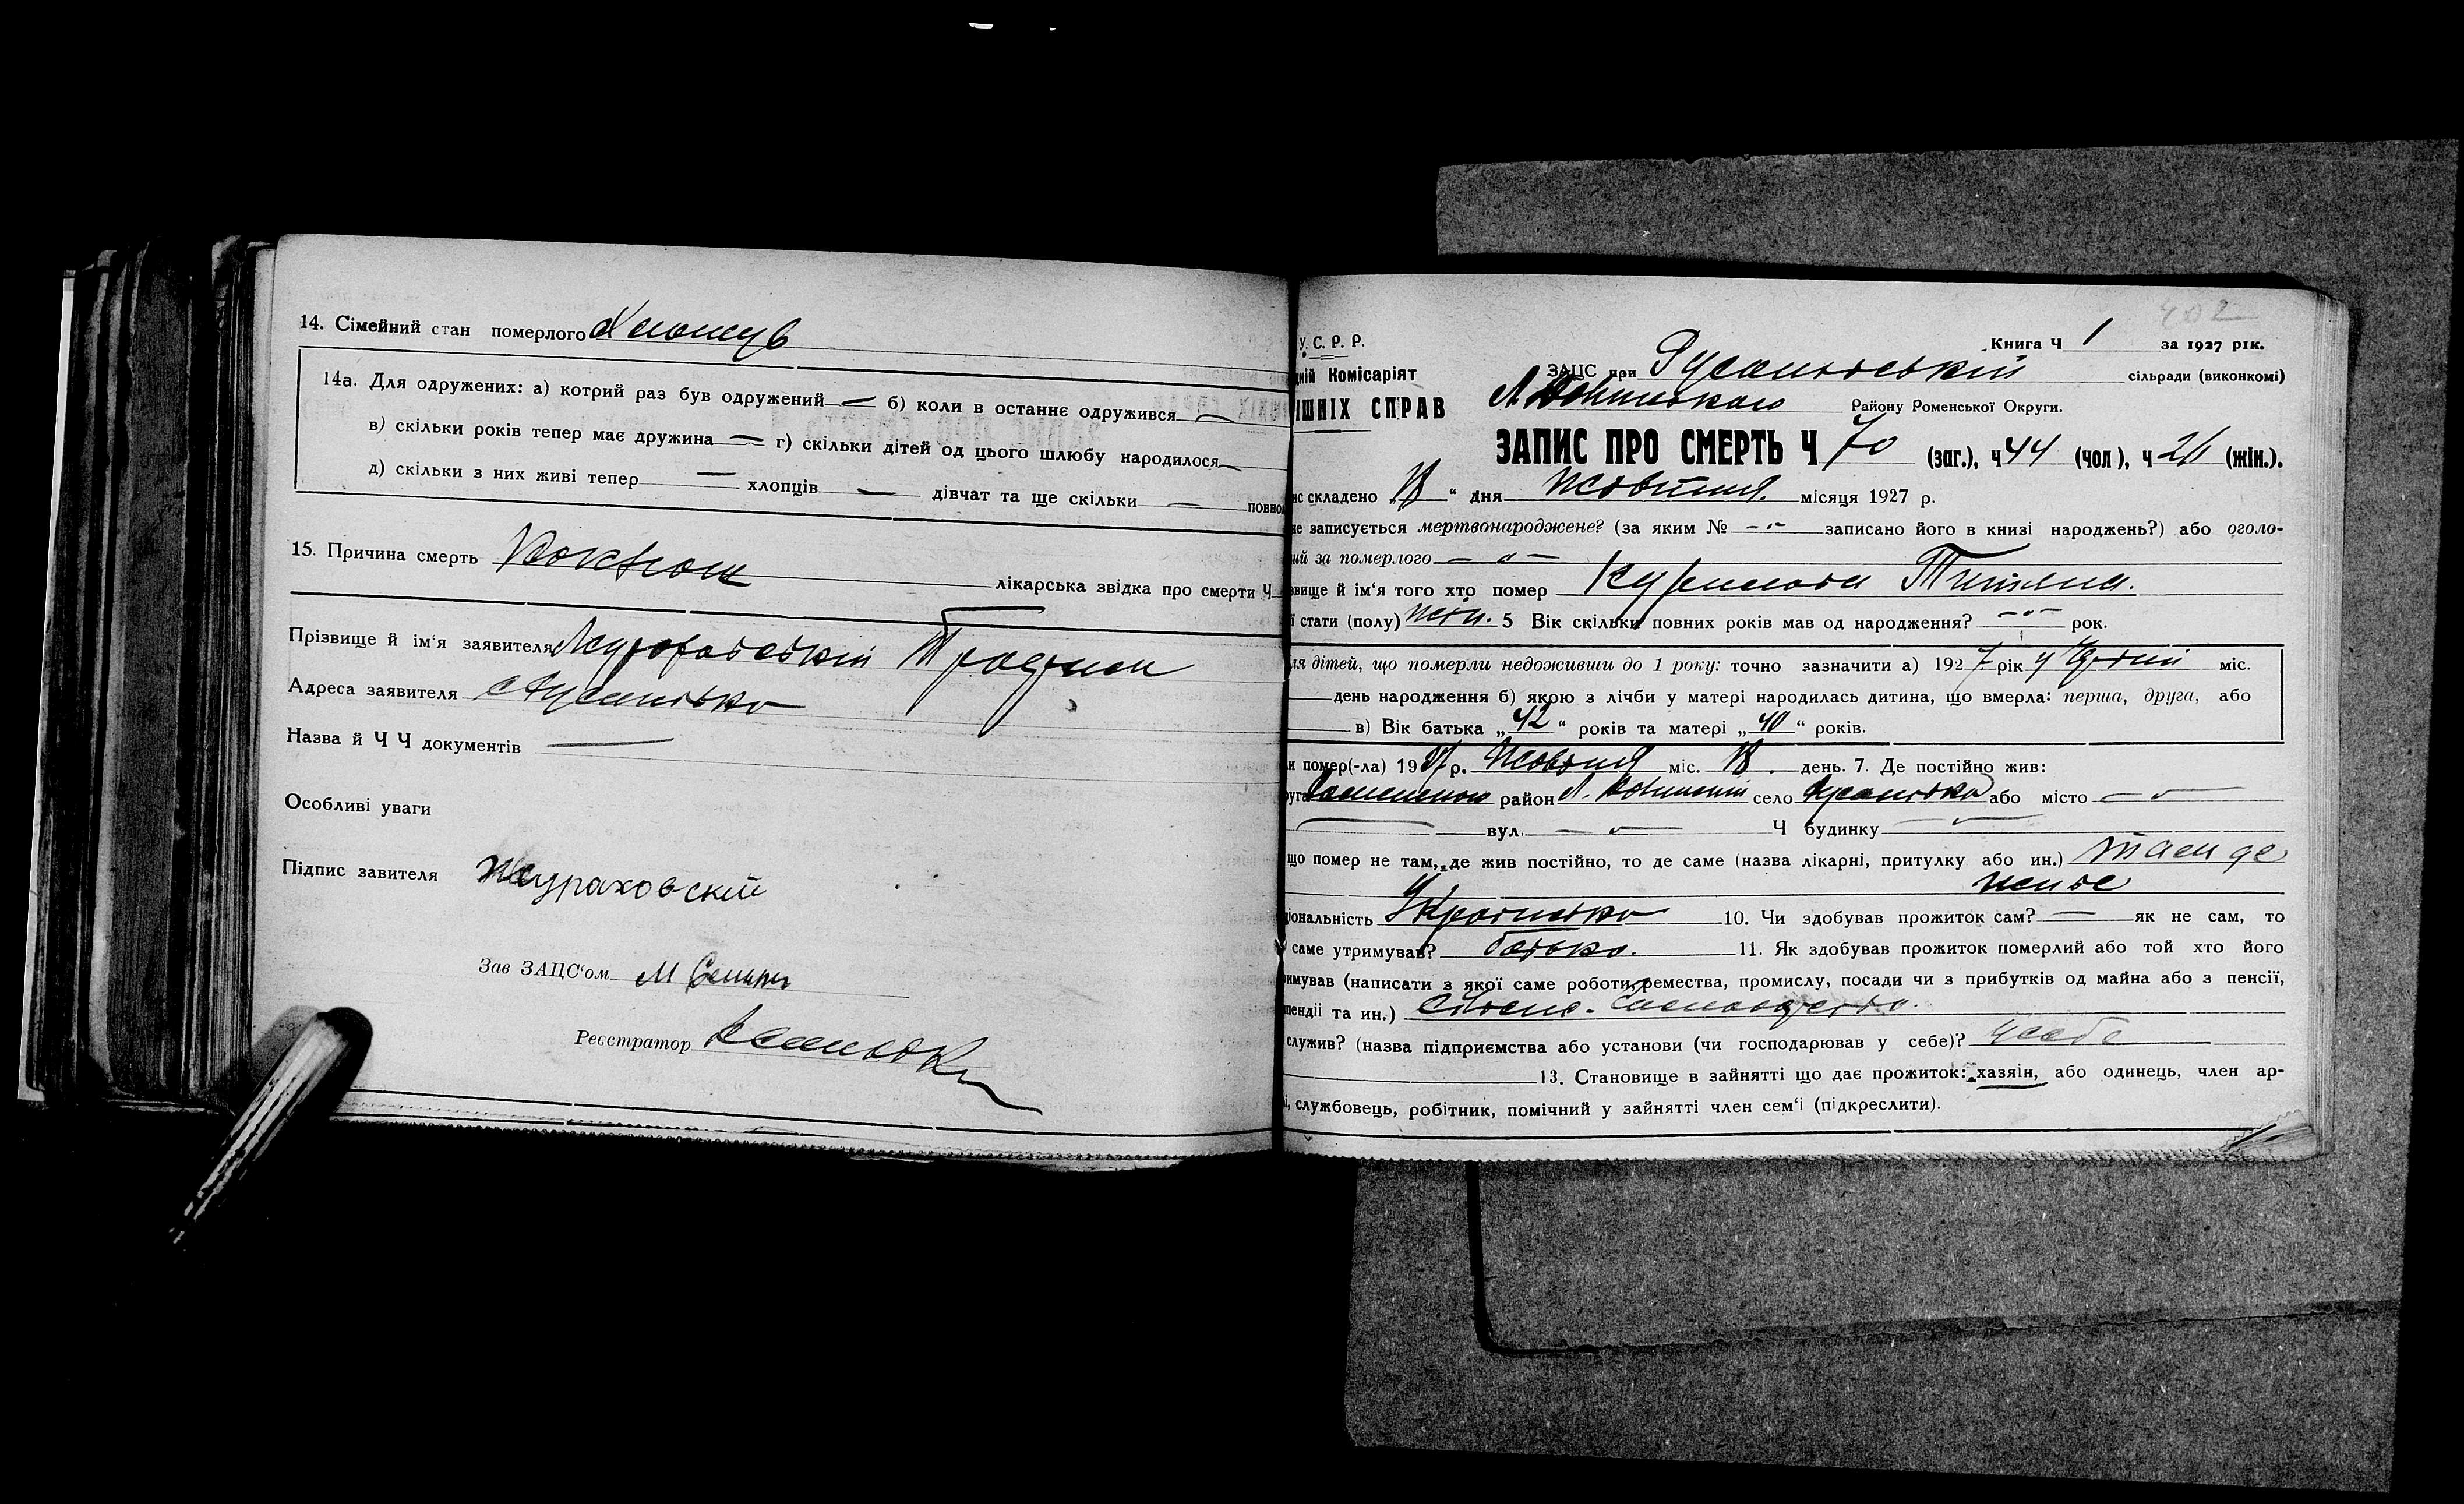 14. Сімейний стан померлого
14а. Для одружених: а) котрий раз був одружений — б) коли в останнє одружився —
в) скільки років тепер має дружина — г) скільки дітей од цього шлюбу народилося —
д) скільки з них живі тепер — хлопців — дівчат та ще скільки — повнол
15. Причина смерть Коклюш лікарська звідка про смерти Ч
Прізвище й ім'я заявителя Журавовський
Адреса заявителя
Назва й Ч Ч документів —
Особливі уваги
Підпис завителя Жураховский
Зав ЗАЦС'ом М
Реєстратор
402
У. С. Р. Р.
дній Комісаріят
ІШНІХ СПРАВ
Книга Ч 1 за 1927 рік.
ЗАЦС при Русанівській сільради (виконкомі)
Району Роменської Округи.
ЗАПИС ПРО СМЕРТЬ Ч 70 (заг.), ч 44 (чол), ч 26 (жін.).
ис складено 18 " дня Жовтня місяця 1927 р.
не записується мертвонароджене? (за яким № -"- записано його в книзі народжень?) або оголо-
ий за померлого — " —
звище й ім'я того хто помер Титяна.
ї стати (полу) жін. 5 Вік скільки повних років мав од народження? -"- рок.
ля дітей, що померли недоживши до 1 року: точно зазначити а) 1927 рік міс.
день народження б) якою з лічби у матері народилась дитина, що вмерла: перша, друга, або
в) Вік батька „42" років та матері „40" років.
и помер(-ла) 1927 р. Жовтня міс. 18 день. 7. Де постійно жив:
уга Роменська район село Русанівка або місто —
вул. — Ч будинку —
що помер не там, де жив постійно, то де саме (назва лікарні, притулку або ин.) там де
живе
ціональність Українка 10. Чи здобував прожиток сам? — як не сам, то
саме утримував? батько. 11. Як здобував прожиток померлий або той хто його
римував (написати з якої саме роботи, ремества, промислу, посади чи з прибутків од майна або з пенсії,
пендії та ин.)
служив? (назва підприємства або установи (чи господарював у себе)? у себе
13. Становище в зайнятті що дає прожиток: хазяін, або одинець, член ар-
і, службовець, робітник, помічний у зайнятті член сем'ї (підкреслити).